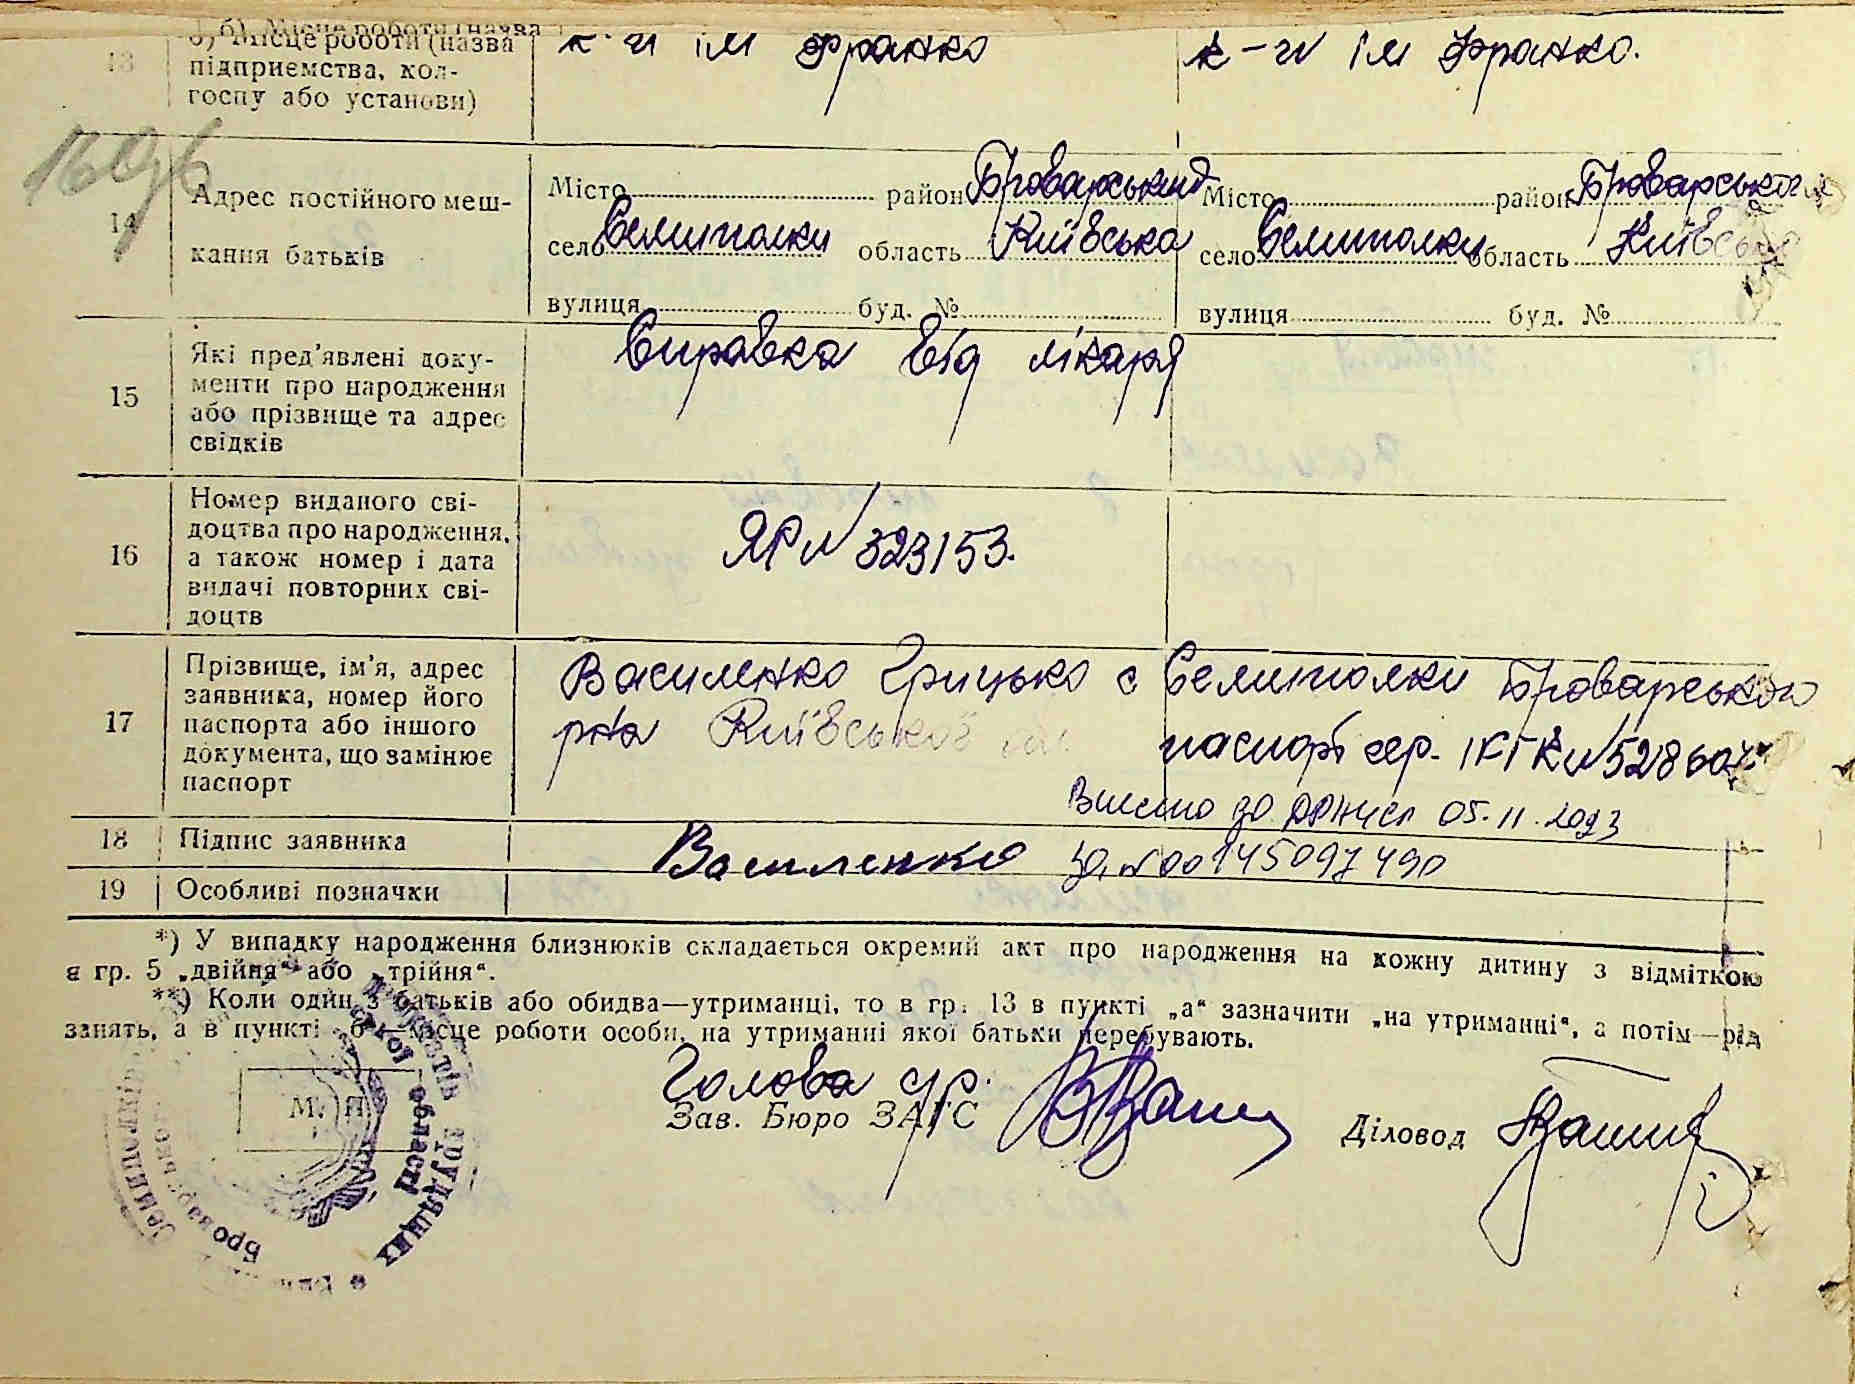 б) Місце роботи (назва
13 б) Місце роботи (назва к-п ім Франко к-п ім Франко.
підприємства, кол-
госпу або установи)
14 Адрес постійного меш-
кання батьків
Місто район Броварський Місто район Броварський
село Семиполки область Київська село Семиполки область Київська
вулиця буд. № вулиця буд. №
15 Які пред'явлені доку-
менти про народження
або прізвище та адрес
свідків
Справка від лікаря
16 Номер виданого сві-
доцтва про народження,
а також номер і дата
видачі повторних сві-
доцтв
ЯР № 323153.
17 Прізвище, ім'я, адрес
заявника, номер його
паспорта або іншого
документа, що замінює
паспорт
Василенко Грицько с Семиполки Броварського
р-на Київської паспорт сер.
Внесено до ДРАЦСГ 05.11.2023
18 Підпис заявника Василенко
з. № 00145097490
19 Особливі позначки
*) У випадку народження близнюків складається окремий акт про народження на кожну дитину з відміткою
в гр. 5 „двійня“ або „трійня“.
**) Коли один з батьків або обидва—утриманці, то в гр. 13 в пункті „а“ зазначити „на утриманні“, а потім—рід
занять, а в пункті „б“—місце роботи особи, на утриманні якої батьки перебувають.
Голова с/р.
Зав. Бюро ЗАГС Діловод
М. П.
депутатів трудящих
області
Семиполків
Броварського